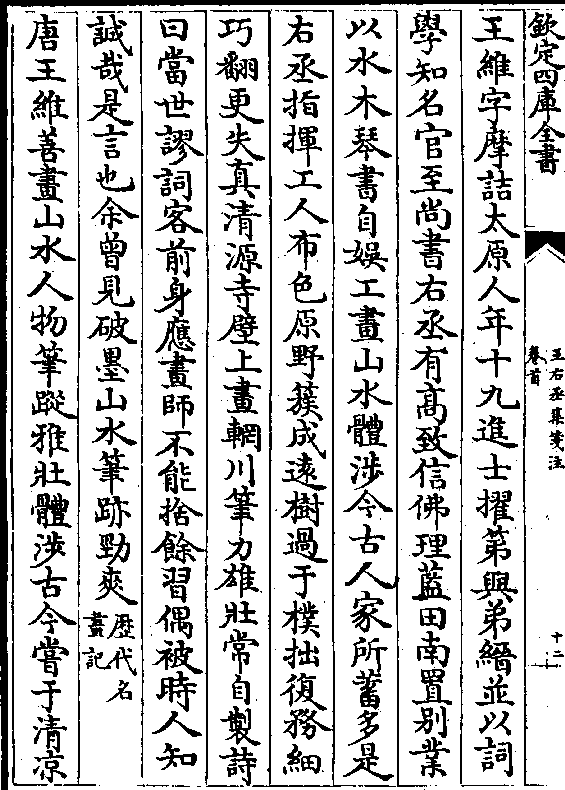 欽定四庫全書
王右丞集箋注
卷首
十二
王維字摩詰太原人年十九進士擢第與弟縉並以詞
學知名官至尚書右丞有髙致信佛理藍田南置别業
以水木琴書自娱工畫山水體渉今古人家所蓄多是
右丞指揮工人布色原野簇成逺樹過于樸拙復務細
巧翻更失真清源寺壁上畫輞川筆力雄壯常自製詩
曰當世謬詞客前身應畫師不能捨餘習偶被時人知
誠哉是言也余曾見破墨山水筆跡勁爽歴代名畫記
唐王維善畫山水人物筆蹤雅壯體渉古今嘗于清凉